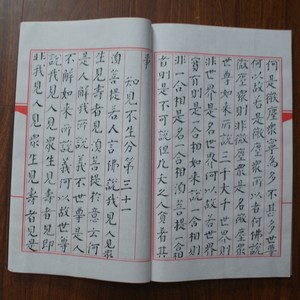 何是微塵衆寧為多不甚多世尊
何以故若是微塵衆有者佛說
微塵衆則非微塵衆是名微塵
世尊如來所說三千大千世界則
非世界是名世界何以故若世界
實有則是一合相如來說一合相則
非一合相是名一合相須菩提一合相
者則是不可說但凡夫之人貪著其
事
知見不生分第三十一
須菩提若人言佛說我見人見衆
生見壽者見須菩提於意云何
是人解我所說義不世尊是人
不解如來所說義何以故世尊
說我見人見衆生見壽者見即
非我見人見衆生見壽者見是